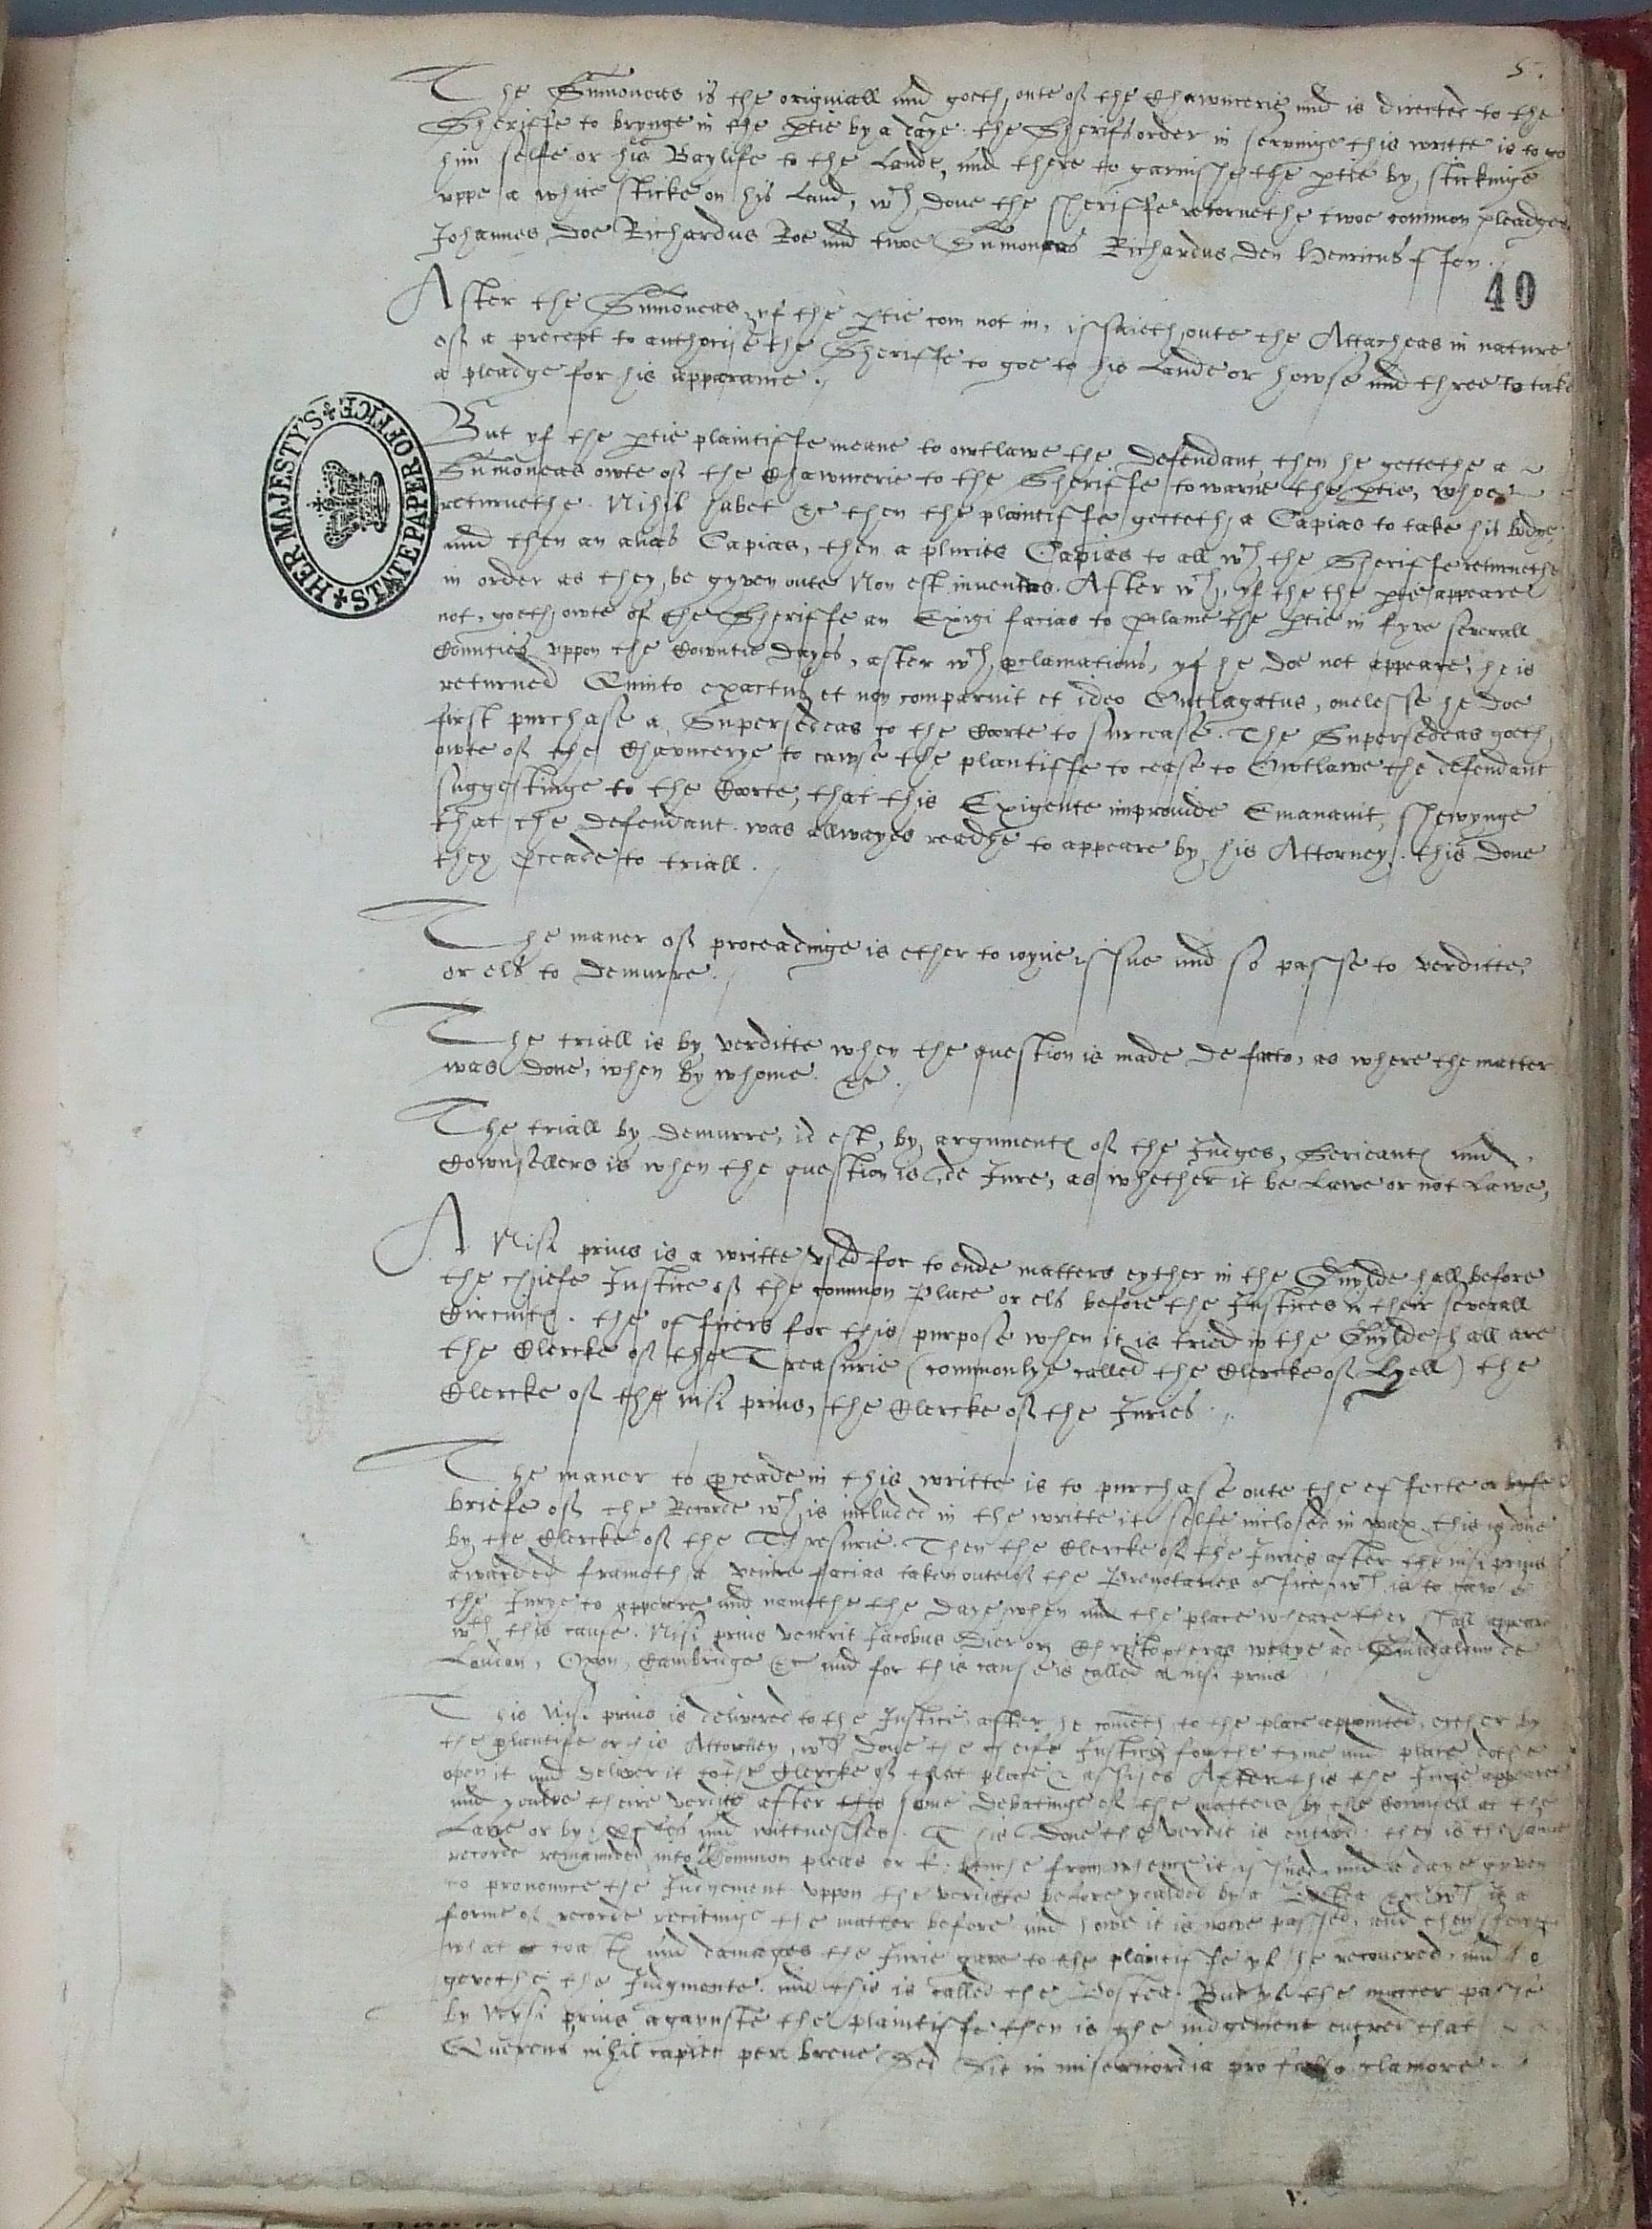 5.
The Sumoneas is the originiall and goeth oute of the Chawncerie and is directed to the
Sheriffe to brynge in the ptie by a daye: the Sherifs order in servinge this writte is to go
him selfe or his Baylife to the Lande, and there to garnishe the ptie by stickinge
uppe a white sticke on his Land, wch done the sheriffe retornethe twoe common pleadges
Johannes Doe Richardus Roe and twoe Sumoneas Richardus Den Henricus ffen.
40
After the Sumoneas yf the ptie com not in, issueth oute the Attacheas in nature
of a precept to authorise the Sheriffe to goe to his Lande or howse and there to take
a pleadge for his apparance.
But yf the ptie plaintiffe meane to owtlawe the Defendant then he gettethe a
Sumoneas owte of the Chawncerie to the Sheriffe to warne the ptie, whoe
returnethe Nihil habet &c then the plaintiffe getteth a Capias to take his bodye,
and then an alias Capias, then a pluries Capias to all wch the Sheriffe returnethe
in order as they be gyven oute Non est inventus. After wch yf the the ptie appeare
not, goeth owte of the Sheriffe an Exigi facias to pclame the ptie in fyve severall
Counties uppon the Cowntie dayes, after wch pclamations, yf he doe not appeare, he is
returned Quinto exactus et non comparuit et ideo Utlagatus, onelesse he doe
first purchase a Supersedeas to the Corte to surcease. The Supersedeas goeth
owte of the Chawncerye to cawse the plantiffe to cease to Owtlawe the defendant
suggestinge to the Corte, that this Exigente improvide Emanavit, shewynge
that the defendant was allwayes readye to appeare by his Attorney. this done
they pceade to triall.
The maner of proceadinge is ether to ioyne issue and so passe to verditte,
or els to Demurre.
The triall is by verditte when the question is made de facto, as where the matter
was done, when by whome &c.
The triall by Demurre, id est, by arguments of the Judges, Serieants and
Cownsellers is when the question is de Jure, as whether it be Lawe or not Lawe,
A Nisi prius is a writte used for to ende matters eyther in the Guylde hall before
the chiefe Justice of the common Place or els before the Justices in their severall
Circuits. the officers for this purpose when it is tried in the Guylde hall are
the Clercke of the Treasurie (commonlye called the Clercke of Hell) the
Clercke of the nisi prius, the Clercke of the Juries.
The maner to pceade in this writte is to purchase oute the effecte or
briefe of the Recorde wch is included in the writte it selfe inclosed in wax. this is done
by the Clercke of the Thresurie. Then the Clercke of the Juries after the nisi prius
awarded frameth a venire facias taken oute of the Prenotaries office wch is to cawse
the Jurye to appeare and namethe the daye when and the place wheare they shall appeare
wth this cause. Nisi prius venerit Jacobus Dier or Christopherus Wraye ad Guildhalam de
London, Oxon, Cambridge &c and for this cause is called a nisi prius
This Nisi prius is delivered to the Justice after he cometh to the place appointed, ether by
the plantife or his Attorney, wch done the cheife Justice for the tyme and place dothe
open it and deliver it to the Clercke of that place assises After this the Jurye appeare
and yealde theire verditt after this some debatinge of the matters by the Cownsell at the
Lawe or by and wittnesses. This done the verdit is entred. then is the same
recorde remainded into the Common pleas or k. benche from whence it issued and a daye gyven
to pronounce the Judgement uppon the verditte before yealded by a Postea &c wch is a
forme of recorde recitinge the matter before and howe it is nowe passed, and then shewe
what costs and damages the Jurie gave to the plaintiffe yf he recovered. and so
gevethe the Judgmente. and this is called the Postea. But yf the matter passe
by Nysi prius agaynste the plaintiffe then is the iudgement entred that
Querens nihil capiet per breve Sed Sit in misericordia pro falso clamore.
HER MAJESTY'S STATE PAPER OFFICE